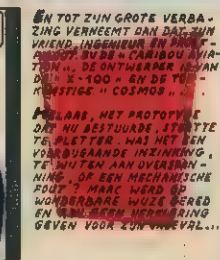 EN TOT ZIJN GROTE VERBA-
ZING VERNEEMT DAN DAT ZIJN
VRIEND, INGENIEUR EN
BUDE "CARIBOU AVIA-
DE ONTWERPER
"X-100" EN DE
KOMSTIGE "COSMOS"
HELAAS, HET PROTOTYPE
DAT NU BESTUURDE, STORTTE
TE PLETTER. WAS HET EEN
VOORBIJGAANDE INZINKING,
TE WIJTEN AAN OVERSPAN-
NING, OF EEN MECHANISCHE
FOUT? MARC WERD OP
WONDERBARE WIJZE GERED
EN KAN GEEN VERKLARING
GEVEN VOOR ZIJN ONGEVAL...